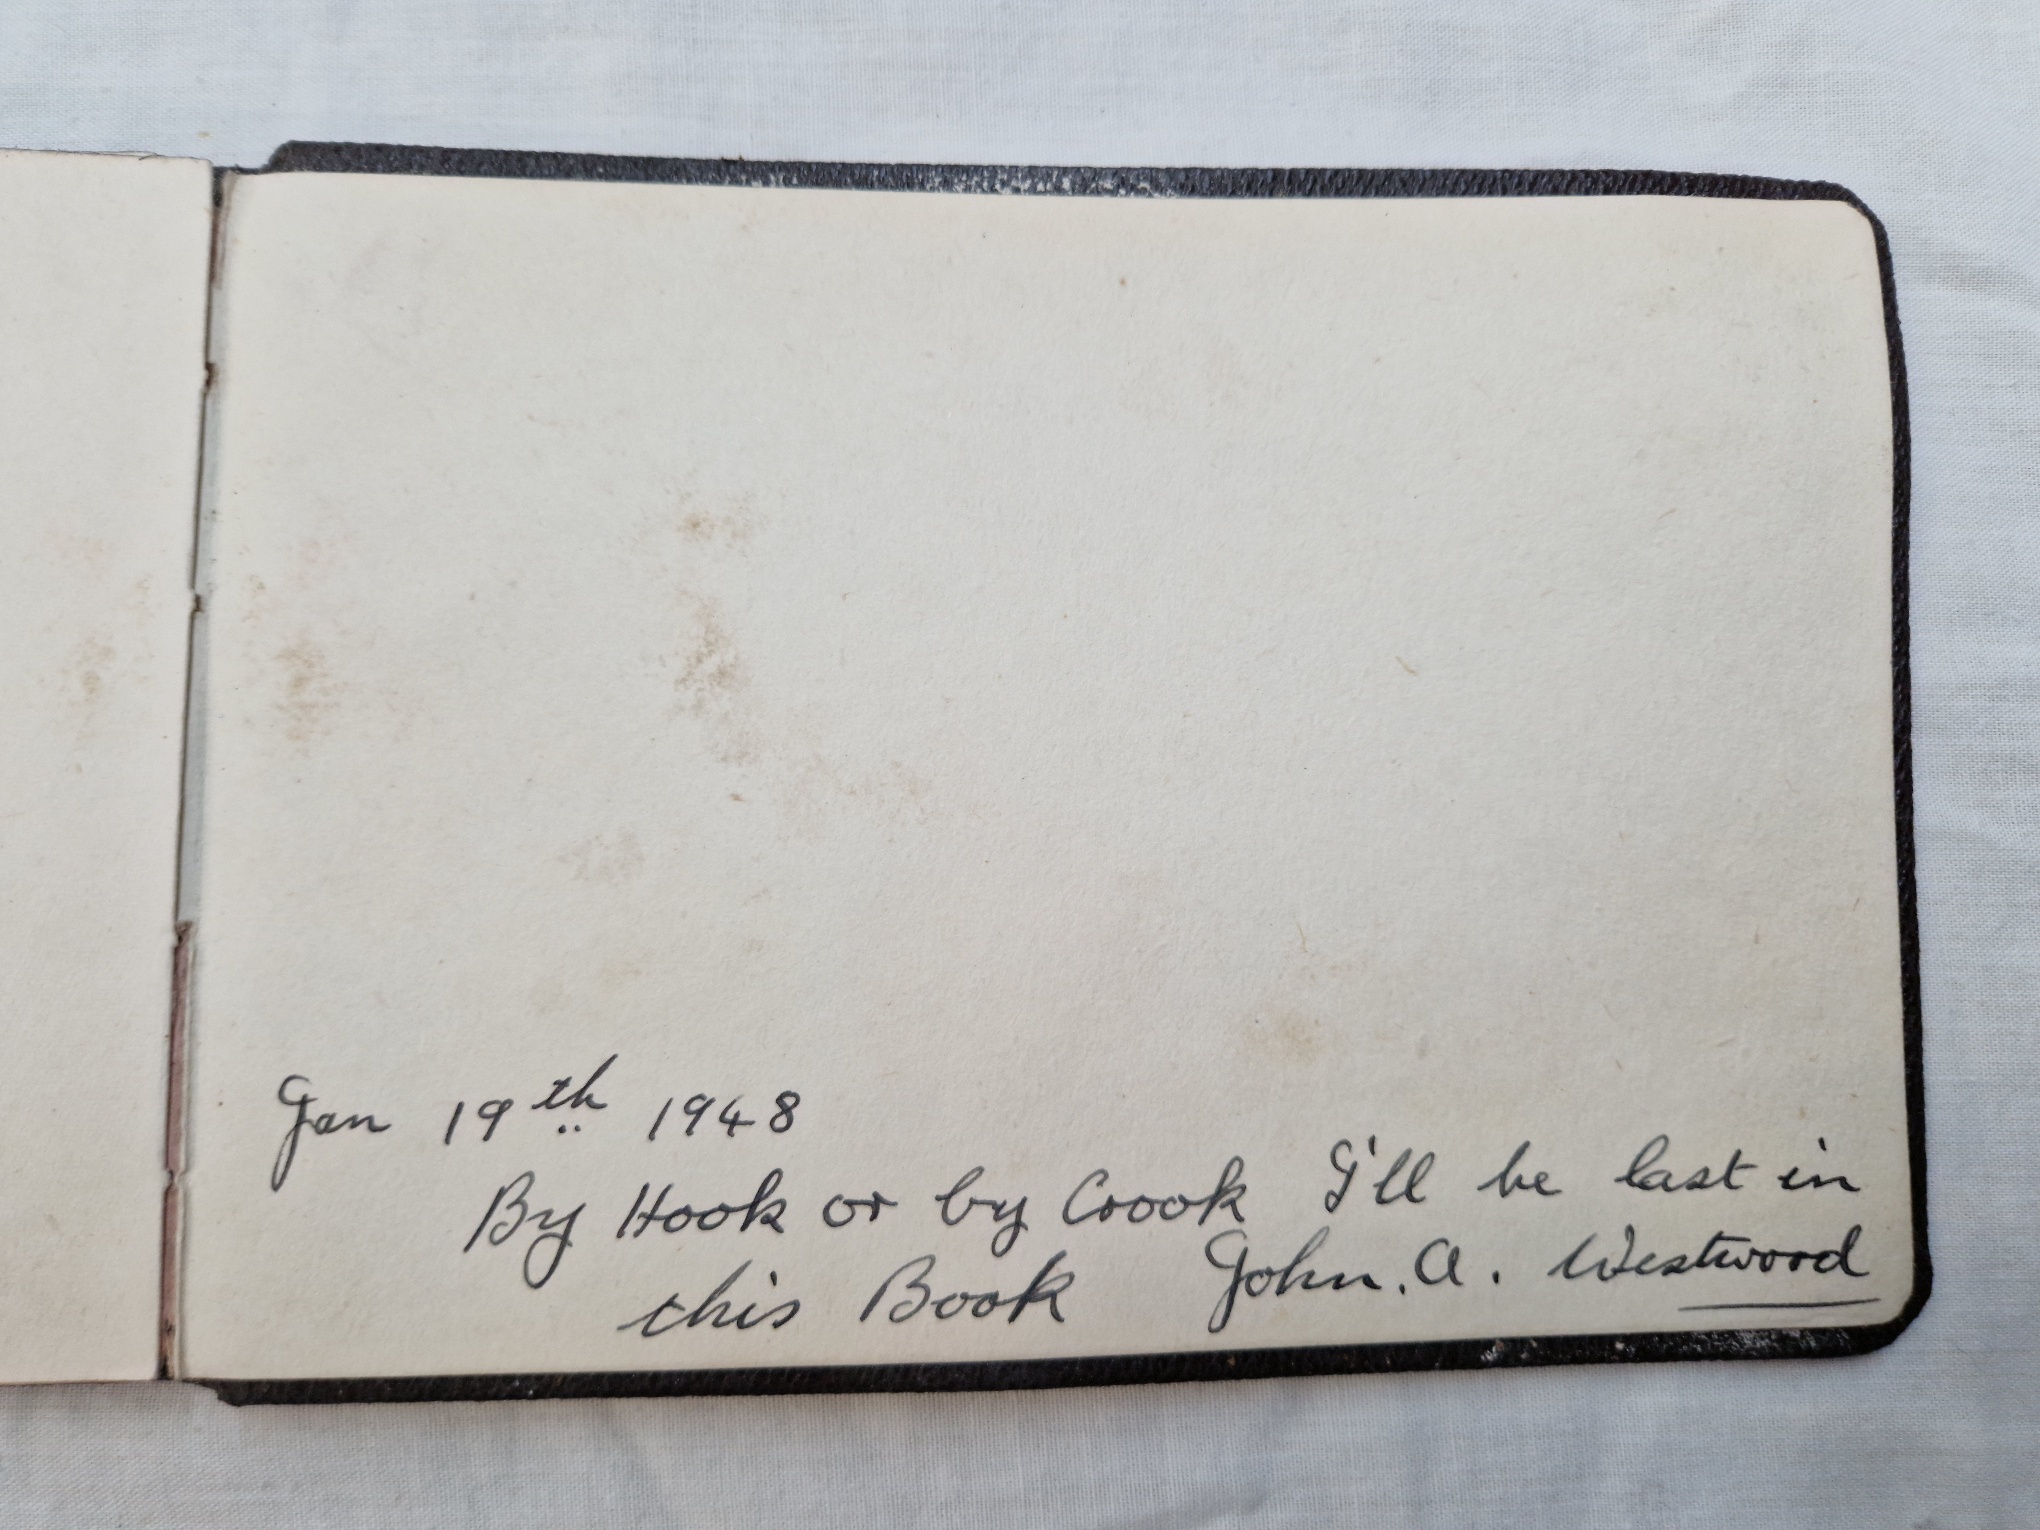 Jan 19th 1948
By Hook or by Crook I'll be last in
this Book John. A. Westwood